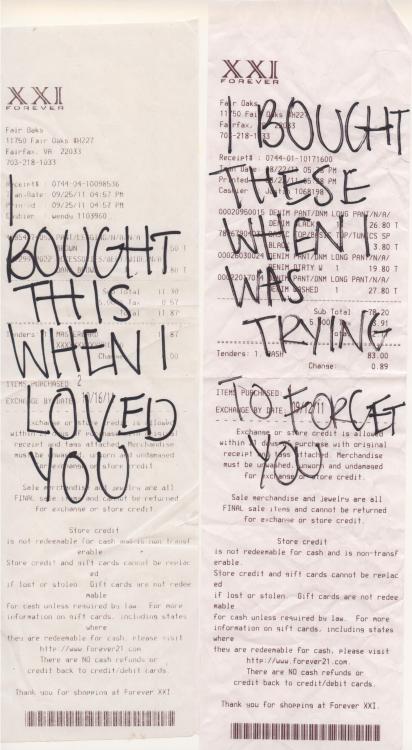 XXI
FOREVER
Fair Oaks
11750 Fair Oaks #H227
Fairfax, VA 22033
703-218-1033
Receipt# : 0744-04-10098536
09/25/11 04:57 PM
09/25/11 04:57 PM
wendy 1103960
I
BOUGHT
THIS
WHEN I
LOVED
YOU
Sub Total 11.30
0.57
11.87
ITEMS PURCHASED 2
EXCHANGE BY DATE
Exchange or store credit is allowed
within
receipt and tags attached. Merchandise
must be
Sale merchandise and jewelry are all
FINAL sale items and cannot be returned
for exchange or store credit.
Store credit
is not redeemable for cash and is non-transf
erable
Store credit and gift cards cannot be replac
ed
if lost or stolen. Gift cards are not redee
mable
for cash unless required by law. For more
information on gift cards, including states
where
they are redeemable for cash, please visit
http://www.forever21.com
There are NO cash refunds or
credit back to credit/debit cards.
Thank you for shopping at Forever XXI.
XXI
FOREVER
Fair Oaks
11750 Fair Oaks #H227
Fairfax, VA 22033
703-218-1033
Receipt# : 0744-01-10171600
Cashier : Justin 1068198
I BOUGHT
THESE
WHEN I
WAS
TRYING
TO FORGET
YOU
00020950015 DENIM PANT/DNM LONG PANT/N/A/
DENIM BLACK
26.80 T
BLACK
3.80 T
DENIM PANT/DNM LONG PANT/N/A/
DENIM DIRTY W 1 19.80 T
DENIM PANT/DNM LONG PANT/N/A/
DENIM WASHED 27.80 T
Sub Total 78.20
Tenders: 1. CASH 83.00
Change: 0.89
ITEMS PURCHASED
EXCHANGE BY DATE 09/12/11
Exchange or store credit is allowed
within 21 days of purchase with original
receipt and tags attached. Merchandise
must be unwashed, unworn and undamaged
for exchange or store credit.
Sale merchandise and jewelry are all
FINAL sale items and cannot be returned
for exchange or store credit.
Store credit
is not redeemable for cash and is non-transf
erable.
Store credit and gift cards cannot be replac
ed
if lost or stolen. Gift cards are not redee
mable
for cash unless required by law. For more
information on gift cards, including states
where
they are redeemable for cash, please visit
http://www.forever21.com.
There are NO cash refunds or
credit back to credit/debit cards.
Thank you for shopping at Forever XXI.